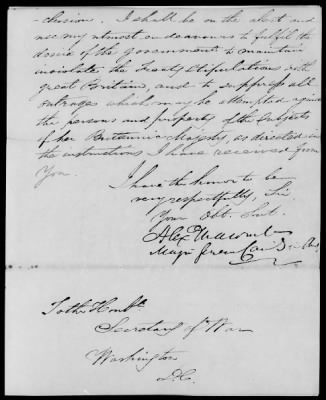 -clusion. I shall be on the alert and
use my utmost endeavours to fulfil the
desire of the Government to maintain
inviolate the Treaty Stipulations with
great Britain, and to suppress all
outrages which may be attempted against
the persons and property of the Subjects
of her Britannic Majesty, as directed in
the instructions I have received from
You.
I have the honor to be
very respectfully, Sir
Your Obt. Sert.
Alex Macomb
Major General
To the Honble
Secretary of War
Washington
D.C.